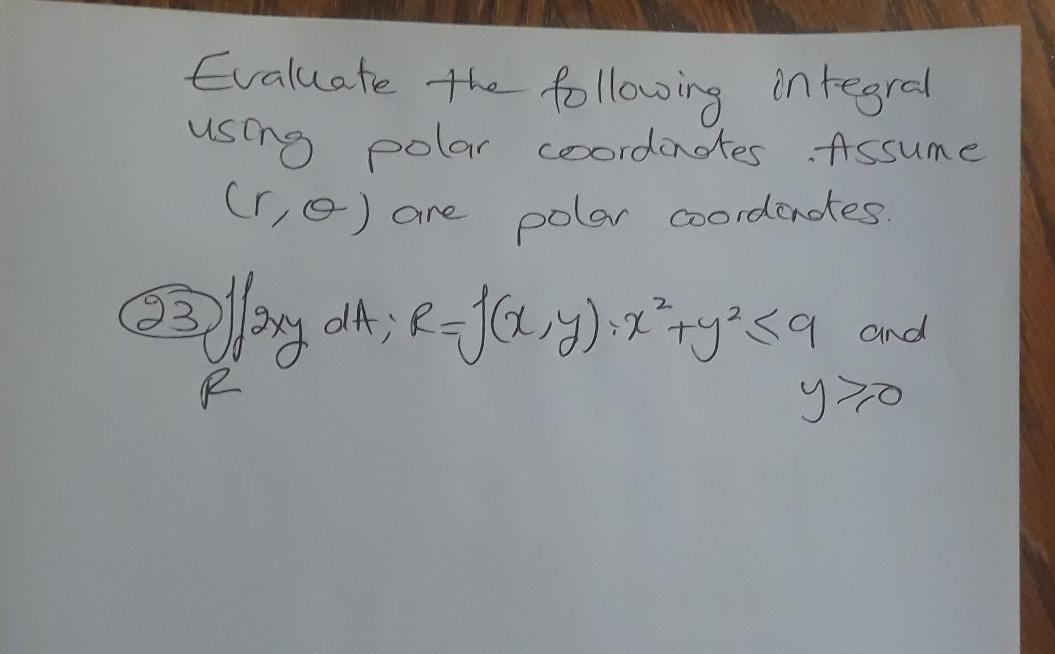 Evaluate the following integral
using polar coordinates. Assume
(r, θ) are polar coordinates.
23 ∬2xy dA; R={(x,y):x²+y²≤9 and
R y≥0